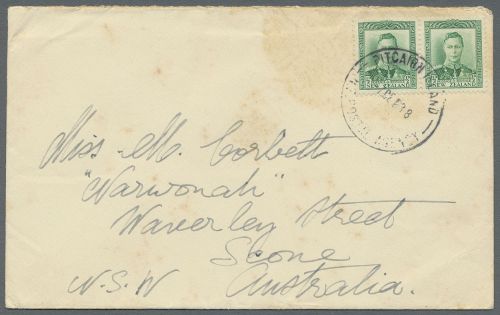 PITCAIRN ISLAND
POSTAL AGENCY
NEW ZEALAND
NEW ZEALAND
Miss. M. Corbett
"Warwonah"
Waverley Street
Scone
N.S.W Australia.